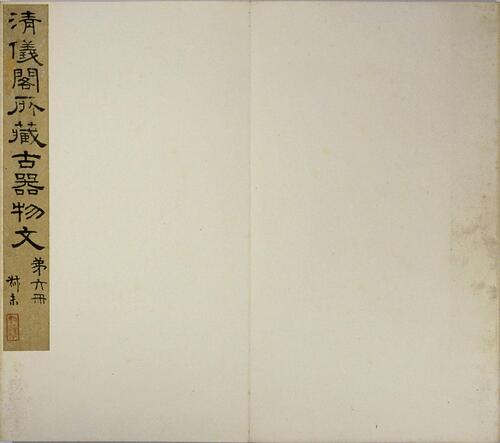 清儀閣所藏古器物文
第六冊
叔未